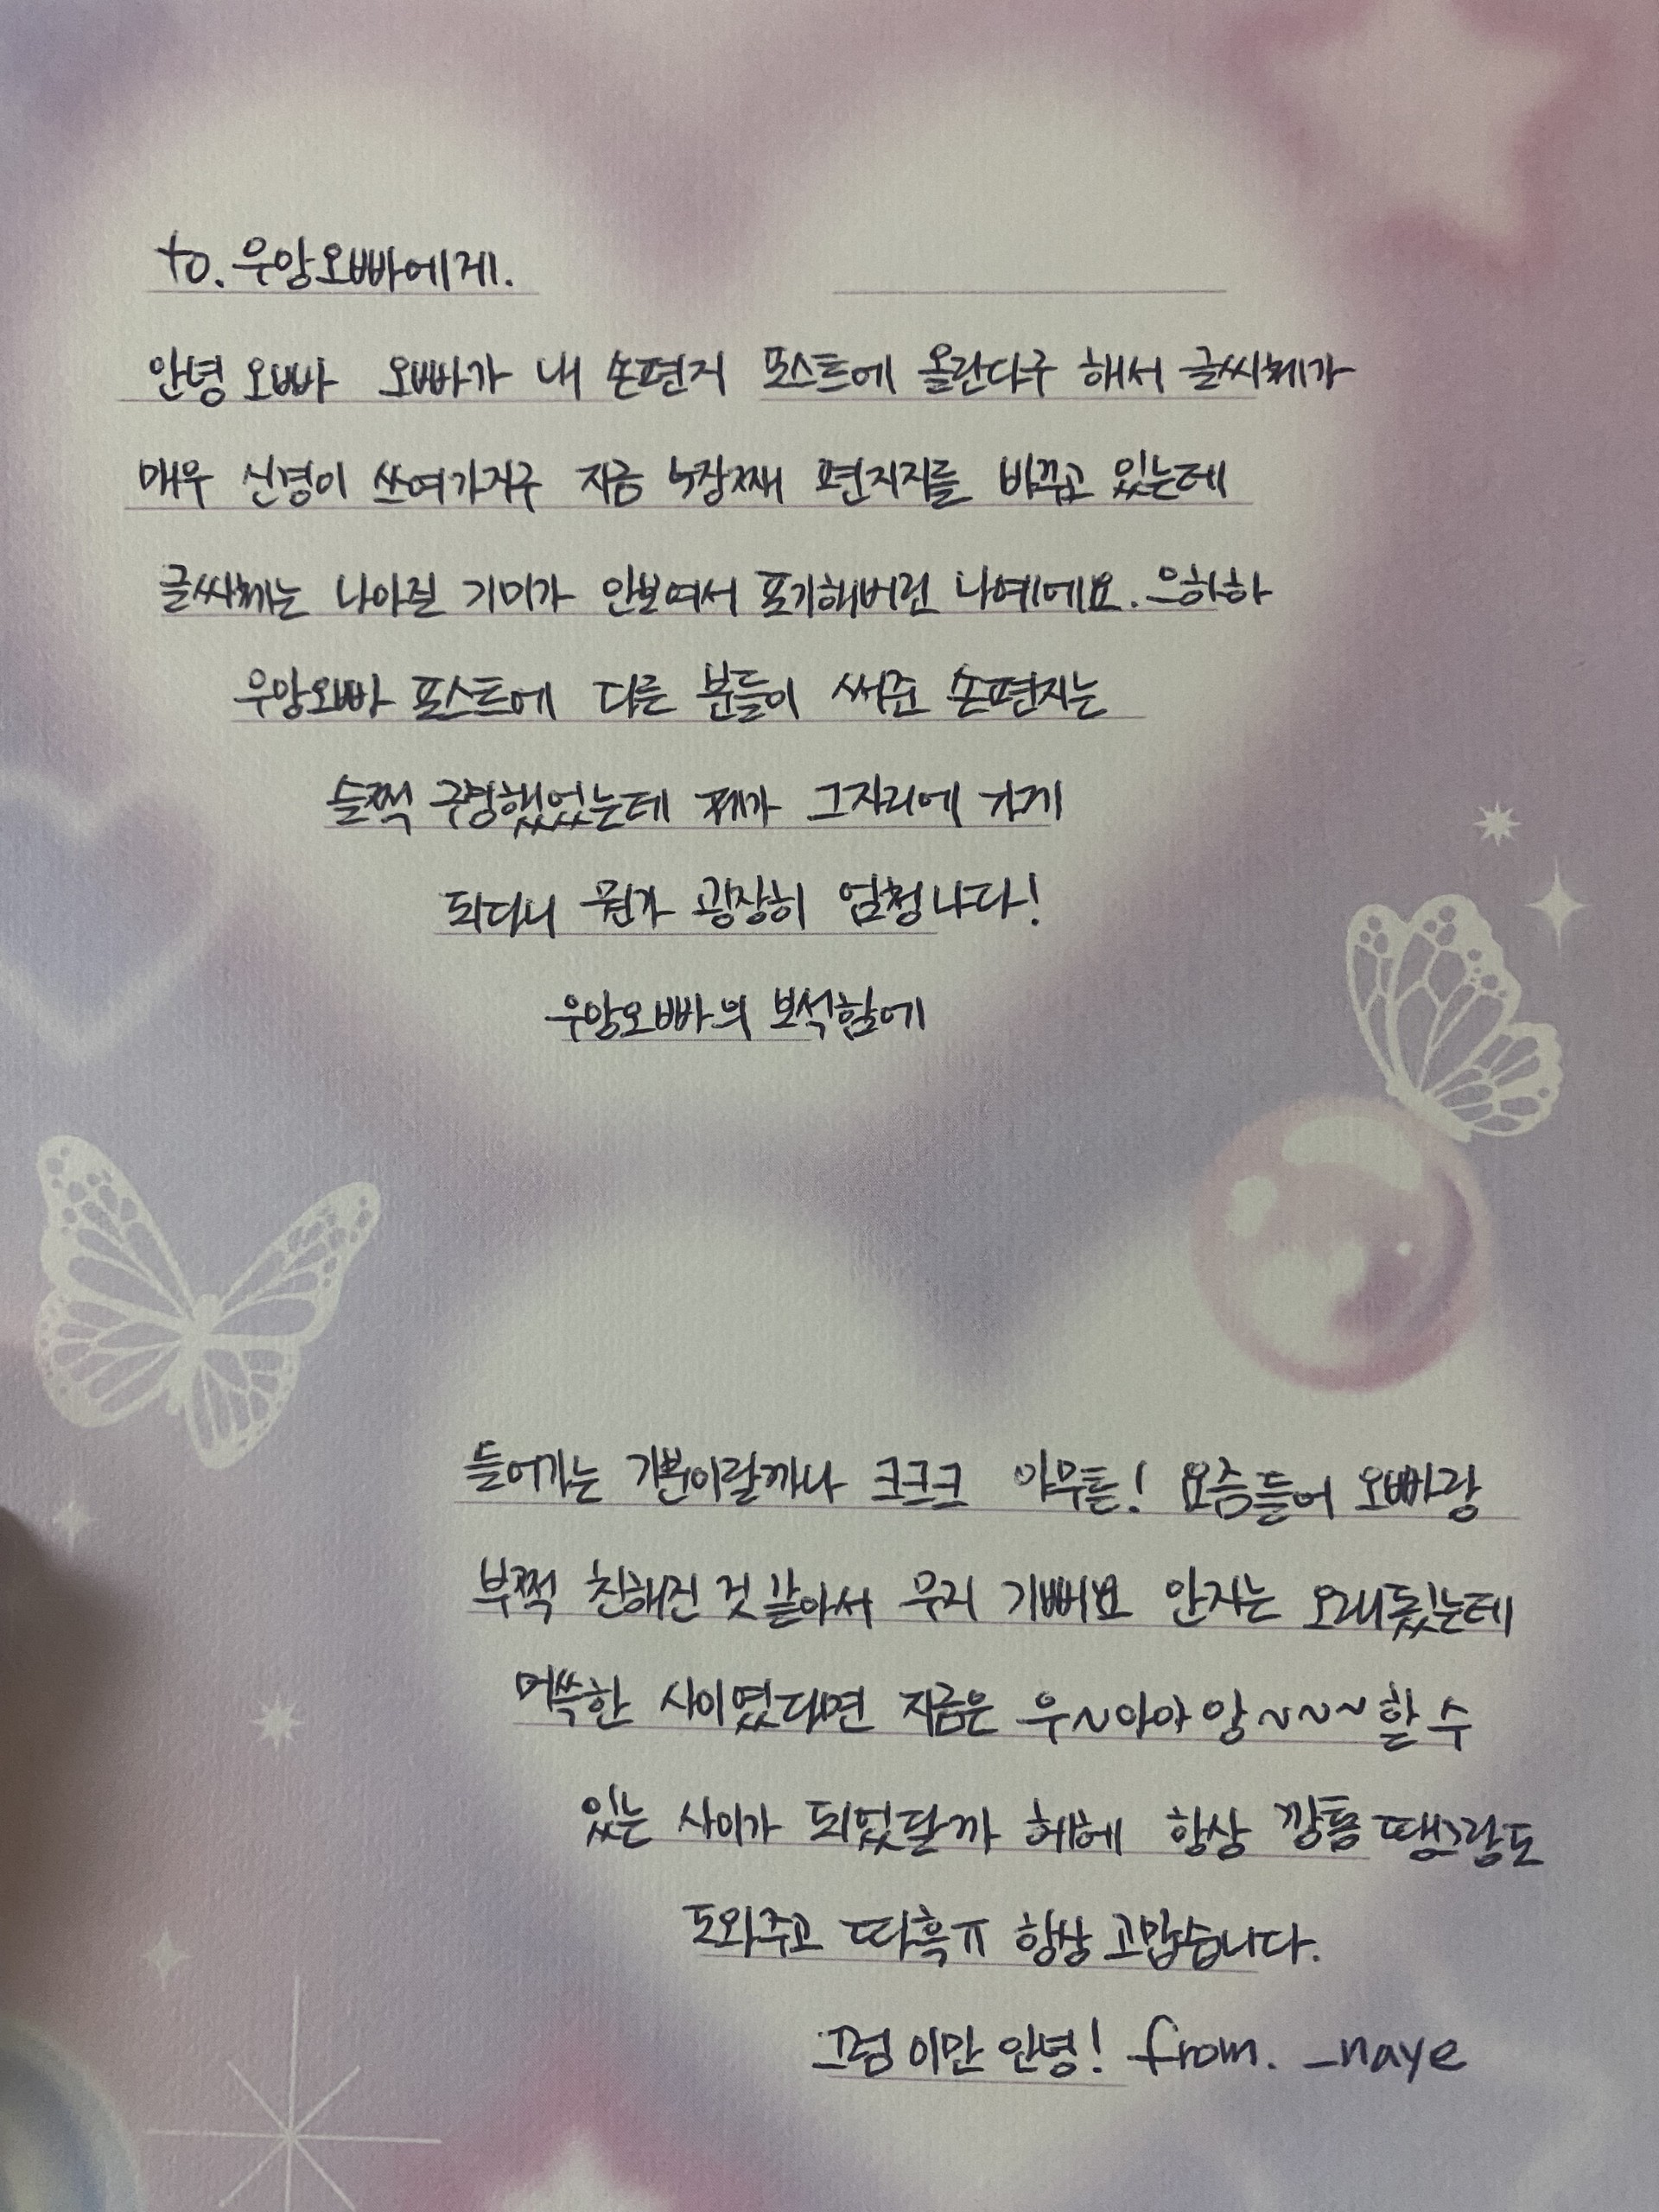 to. 우앙오빠에게.
안녕 오빠 오빠가 내 손편지 포스트에 올린다구 해서 글씨체가
매우 신경이 쓰여가지구 지금 4장째 편지지를 바꾸고 있는데
글씨체는 나아질 기미가 안보여서 포기해버린 나예에요. 으하하
우앙오빠 포스트에 다른 분들이 써준 손편지는
슬쩍 구경했었는데 제가 그자리에 가게
되다니 뭔가 굉장히 엄청나다!
우앙오빠의 보석함에
들어가는 기분이랄까나 크크크 아무튼! 요즘들어 오빠랑
부쩍 친해진 것 같아서 무지 기뻐요 안지는 오래됬는데
머쓱한 사이였다면 지금은 우~아아앙~~~할 수
있는 사이가 되었달까 헤헤 항상 깡통
도와주고 따흑ㅠ 항상 고맙습니다.
그럼 이만 안녕! from. _naye